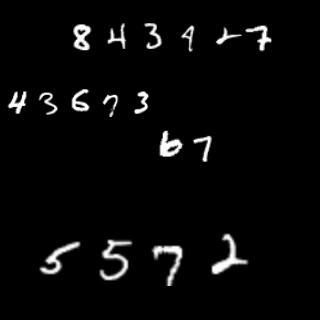 843427
43673
67
5572